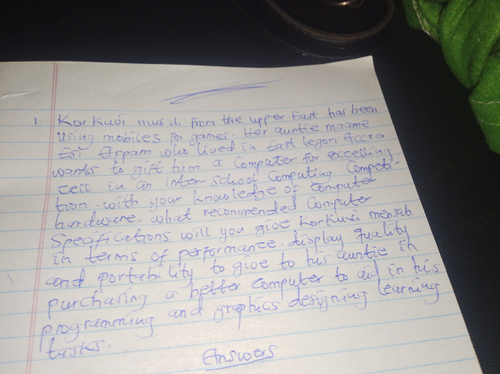 1 Korkuvi musih from the upper East has been
using mobiles for games. Her auntie maame
Esi Appam who lived in East legon Accra
wants to gift him a Computer for excelling
in an inter school Computing Competi-
tion. with your knowledge of Computer
hardware. what recommended Computer
Specifications will you give Korkuvi
in terms of performance. display quality
and portability to give to his auntie in
purchasing a better Computer to aid in his
programming and graphics designing learning
tasks.
Answers